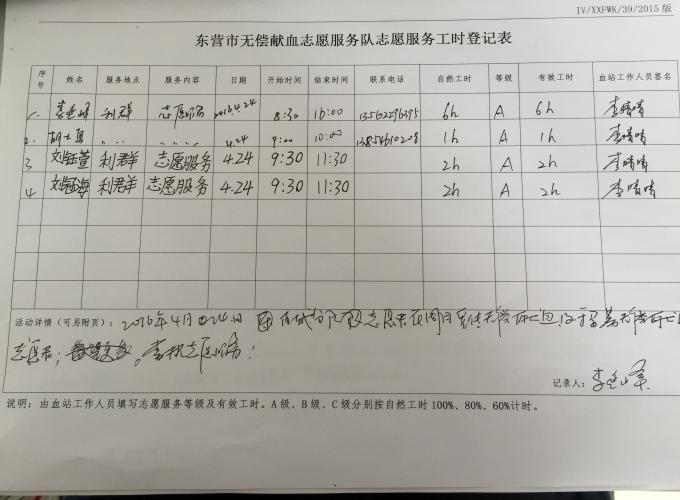 IV/XXFWK/39/2015 版
东营市无偿献血志愿服务队志愿服务工时登记表
序号 姓名 服务地点 服务内容 日期 开始时间 结束时间 联系电话 自然工时 等级 有效工时 血站工作人员签名
1. 利群 志愿服务 2016.4.24 8:30 16:00 13562296395 6h A 6h 李晴晴
2. 胡士勇 〃 〃 4.24 9:00 10:00 13854610208 1h A 1h 李晴晴
3 刘钰萱 利群 志愿服务 4.24 9:30 11:30 2h A 2h 李晴晴
4 刘钰海 利群 志愿服务 4.24 9:30 11:30 2h A 2h 李晴晴
活动详情（可另附页）：2016年4月24日 志愿者在 宣传无偿献血
志愿者； 志愿服务！
记录人：
说明：由血站工作人员填写志愿服务等级及有效工时。A 级、B 级、C 级分别按自然工时 100%、80%、60%计时。